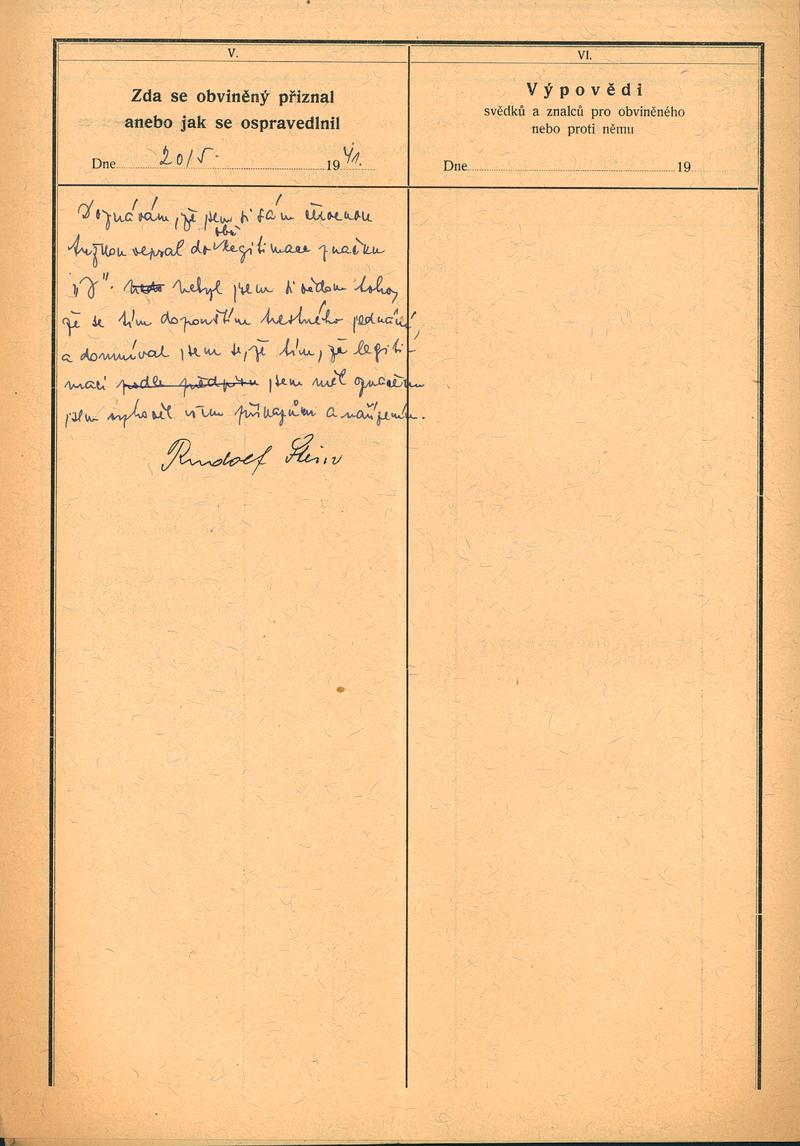 V.
Zda se obviněný přiznal
anebo jak se ospravedlnil
Dne 20/5. 1941.
Doznávám, že jsem si sám červenou
tužkou vepsal do obě legitimace značku
"J". nebyl jsem si vědom toho,
že se tím dopouštím trestného jednání,
a domníval jsem se, že tím, že legiti-
maci podle předpisu jsem měl označenu
jsem vyhověl všem příkazům a nařízením.
Rudolf Stein
VI.
Výpovědi
svědků a znalců pro obviněného
nebo proti němu
Dne 19